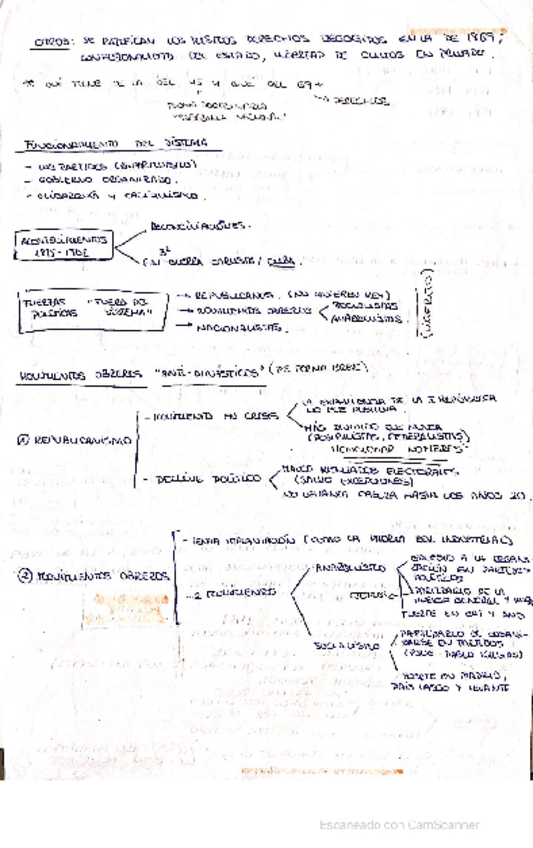 OTROS: SE RATIFICAN LOS MISMOS DERECHOS RECOGIDOS EN LA DE 1869;
CONFESIONAMIENTO DEL ESTADO, LIBERTAD DE CULTOS EN PRIVADO.
QUÉ TIENE DE LA DEL 45 Y QUE DEL 69
DERECHOS
NACIONAL"
FUNCIONAMIENTO DEL SISTEMA
- LOS PARTIDOS (BIPARTIDISMO)
- GOBIERNO ORGANIZADO.
- OLIGARQUÍA Y CACIQUISMO.
ACONTECIMIENTOS
1875-1902
RECONCILIACIONES.
3ª
GUERRA CARLISTA / CUBA.
FUERZAS POLÍTICAS "FUERA DEL SISTEMA"
→ REPUBLICANOS. (NO QUIEREN REY)
→ MOVIMIENTO OBRERO
SOCIALISTAS
ANARQUISTAS
→ NACIONALISTAS.
MOVIMIENTOS OBREROS "ANTI-DINÁSTICOS" (DE FORMA BREVE)
① REPUBLICANISMO
- MOVIMIENTO EN CRISIS
LA EXPERIENCIA DE LA I REPÚBLICA
NO FUE POSITIVA.
MÁS DIVIDIDO QUE NUNCA
(POSIBILISTAS, FEDERALISTAS)
NOMBRES
- DECLIVE POLÍTICO
MALOS RESULTADOS ELECTORALES
(SALVO EXCEPCIONES)
NO LEVANTA CABEZA HASTA LOS AÑOS 20.
② MOVIMIENTOS OBREROS
- LENTA IMPLANTACIÓN (COMO LA PROPIA REV. INDUSTRIAL)
- 2 MOVIMIENTOS
ANARQUISMO
OPUESTO A LA ORGANIZACIÓN EN PARTIDOS
POLÍTICOS
PARTIDARIO DE LA
HUELGA GENERAL Y
FUERTE EN CAT Y AND
SOCIALISMO
PARTIDARIO DE ORGANIZARSE EN PARTIDOS
(PSOE - PABLO IGLESIAS)
FUERTE EN MADRID,
PAÍS VASCO Y LEVANTE
Escaneado con CamScanner